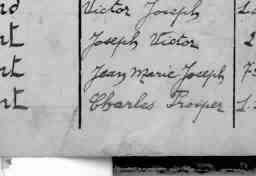 nd Victor Joseph 1
nt Joseph Victor 2
nt Jean Marie Joseph 7
nt Charles Prosper 1